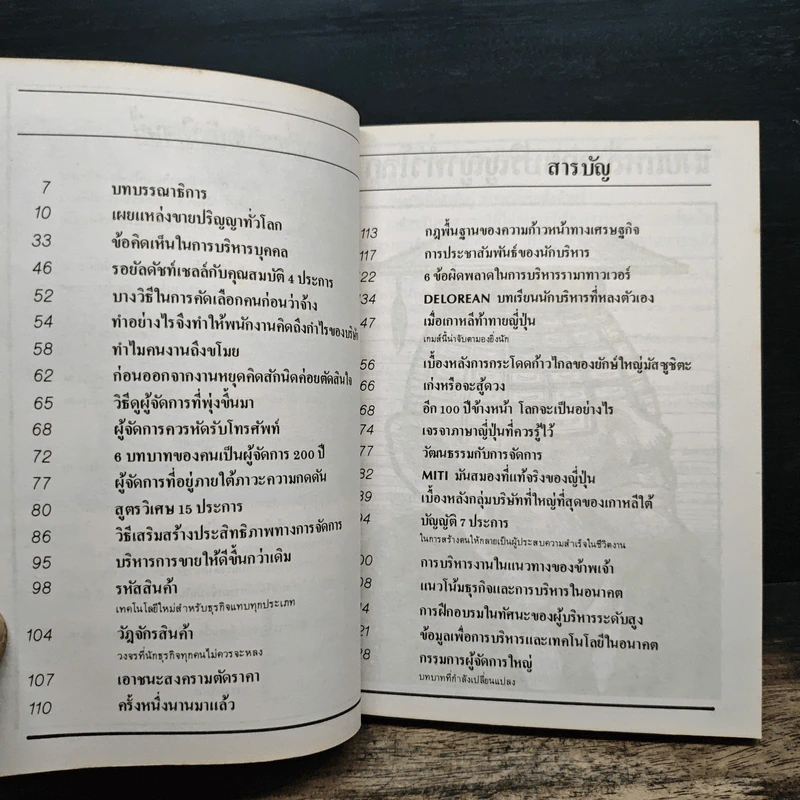 7 บทบรรณาธิการ
10 เผยแหล่งขายปริญญาทั่วโลก
33 ข้อคิดเห็นในการบริหารบุคคล
46 รอยัลดัชท์เชลล์กับคุณสมบัติ 4 ประการ
52 บางวิธีในการคัดเลือกคนก่อนว่าจ้าง
54 ทำอย่างไรจึงทำให้พนักงานคิดถึงกำไรของบริษัท
58 ทำไมคนงานถึงขโมย
62 ก่อนออกจากงานหยุดคิดสักนิดค่อยตัดสินใจ
65 วิธีดูผู้จัดการที่พุ่งขึ้นมา
68 ผู้จัดการควรหัดรับโทรศัพท์
72 6 บทบาทของคนเป็นผู้จัดการ 200 ปี
77 ผู้จัดการที่อยู่ภายใต้ภาวะความกดดัน
80 สูตรวิเศษ 15 ประการ
86 วิธีเสริมสร้างประสิทธิภาพทางการจัดการ
95 บริหารการขายให้ดีขึ้นกว่าเดิม
98 รหัสสินค้า
เทคโนโลยีใหม่สำหรับธุรกิจแทบทุกประเภท
104 วัฎจักรสินค้า
วงจรที่นักธุรกิจทุกคนไม่ควรจะหลง
107 เอาชนะสงครามตัดราคา
110 ครั้งหนึ่งนานมาแล้ว
สารบัญ
113 กฎพื้นฐานของความก้าวหน้าทางเศรษฐกิจ
117 การประชาสัมพันธ์ของนักบริหาร
22 6 ข้อผิดพลาดในการบริหารรามาทาวเวอร์
34 DELOREAN บทเรียนนักบริหารที่หลงตัวเอง
47 เมื่อเกาหลีท้าทายญี่ปุ่น
เกมส์นี้น่าจับตามองยิ่งนัก
56 เบื้องหลังการกระโดดก้าวไกลของยักษ์ใหญ่มัสซูชิตะ
66 เก่งหรือจะสู้ดวง
68 อีก 100 ปีข้างหน้า โลกจะเป็นอย่างไร
74 เจรจาภาษาญี่ปุ่นที่ควรรู้ไว้
77 วัฒนธรรมกับการจัดการ
82 MITI มันสมองที่แท้จริงของญี่ปุ่น
89 เบื้องหลังกลุ่มบริษัทที่ใหญ่ที่สุดของเกาหลีใต้
94 บัญญัติ 7 ประการ
ในการสร้างตนให้กลายเป็นผู้ประสบความสำเร็จในชีวิตงาน
00 การบริหารงานในแนวทางของข้าพเจ้า
08 แนวโน้มธุรกิจและการบริหารในอนาคต
14 การฝึกอบรมในทัศนะของผู้บริหารระดับสูง
21 ข้อมูลเพื่อการบริหารและเทคโนโลยีในอนาคต
28 กรรมการผู้จัดการใหญ่
บทบาทที่กำลังเปลี่ยนแปลง